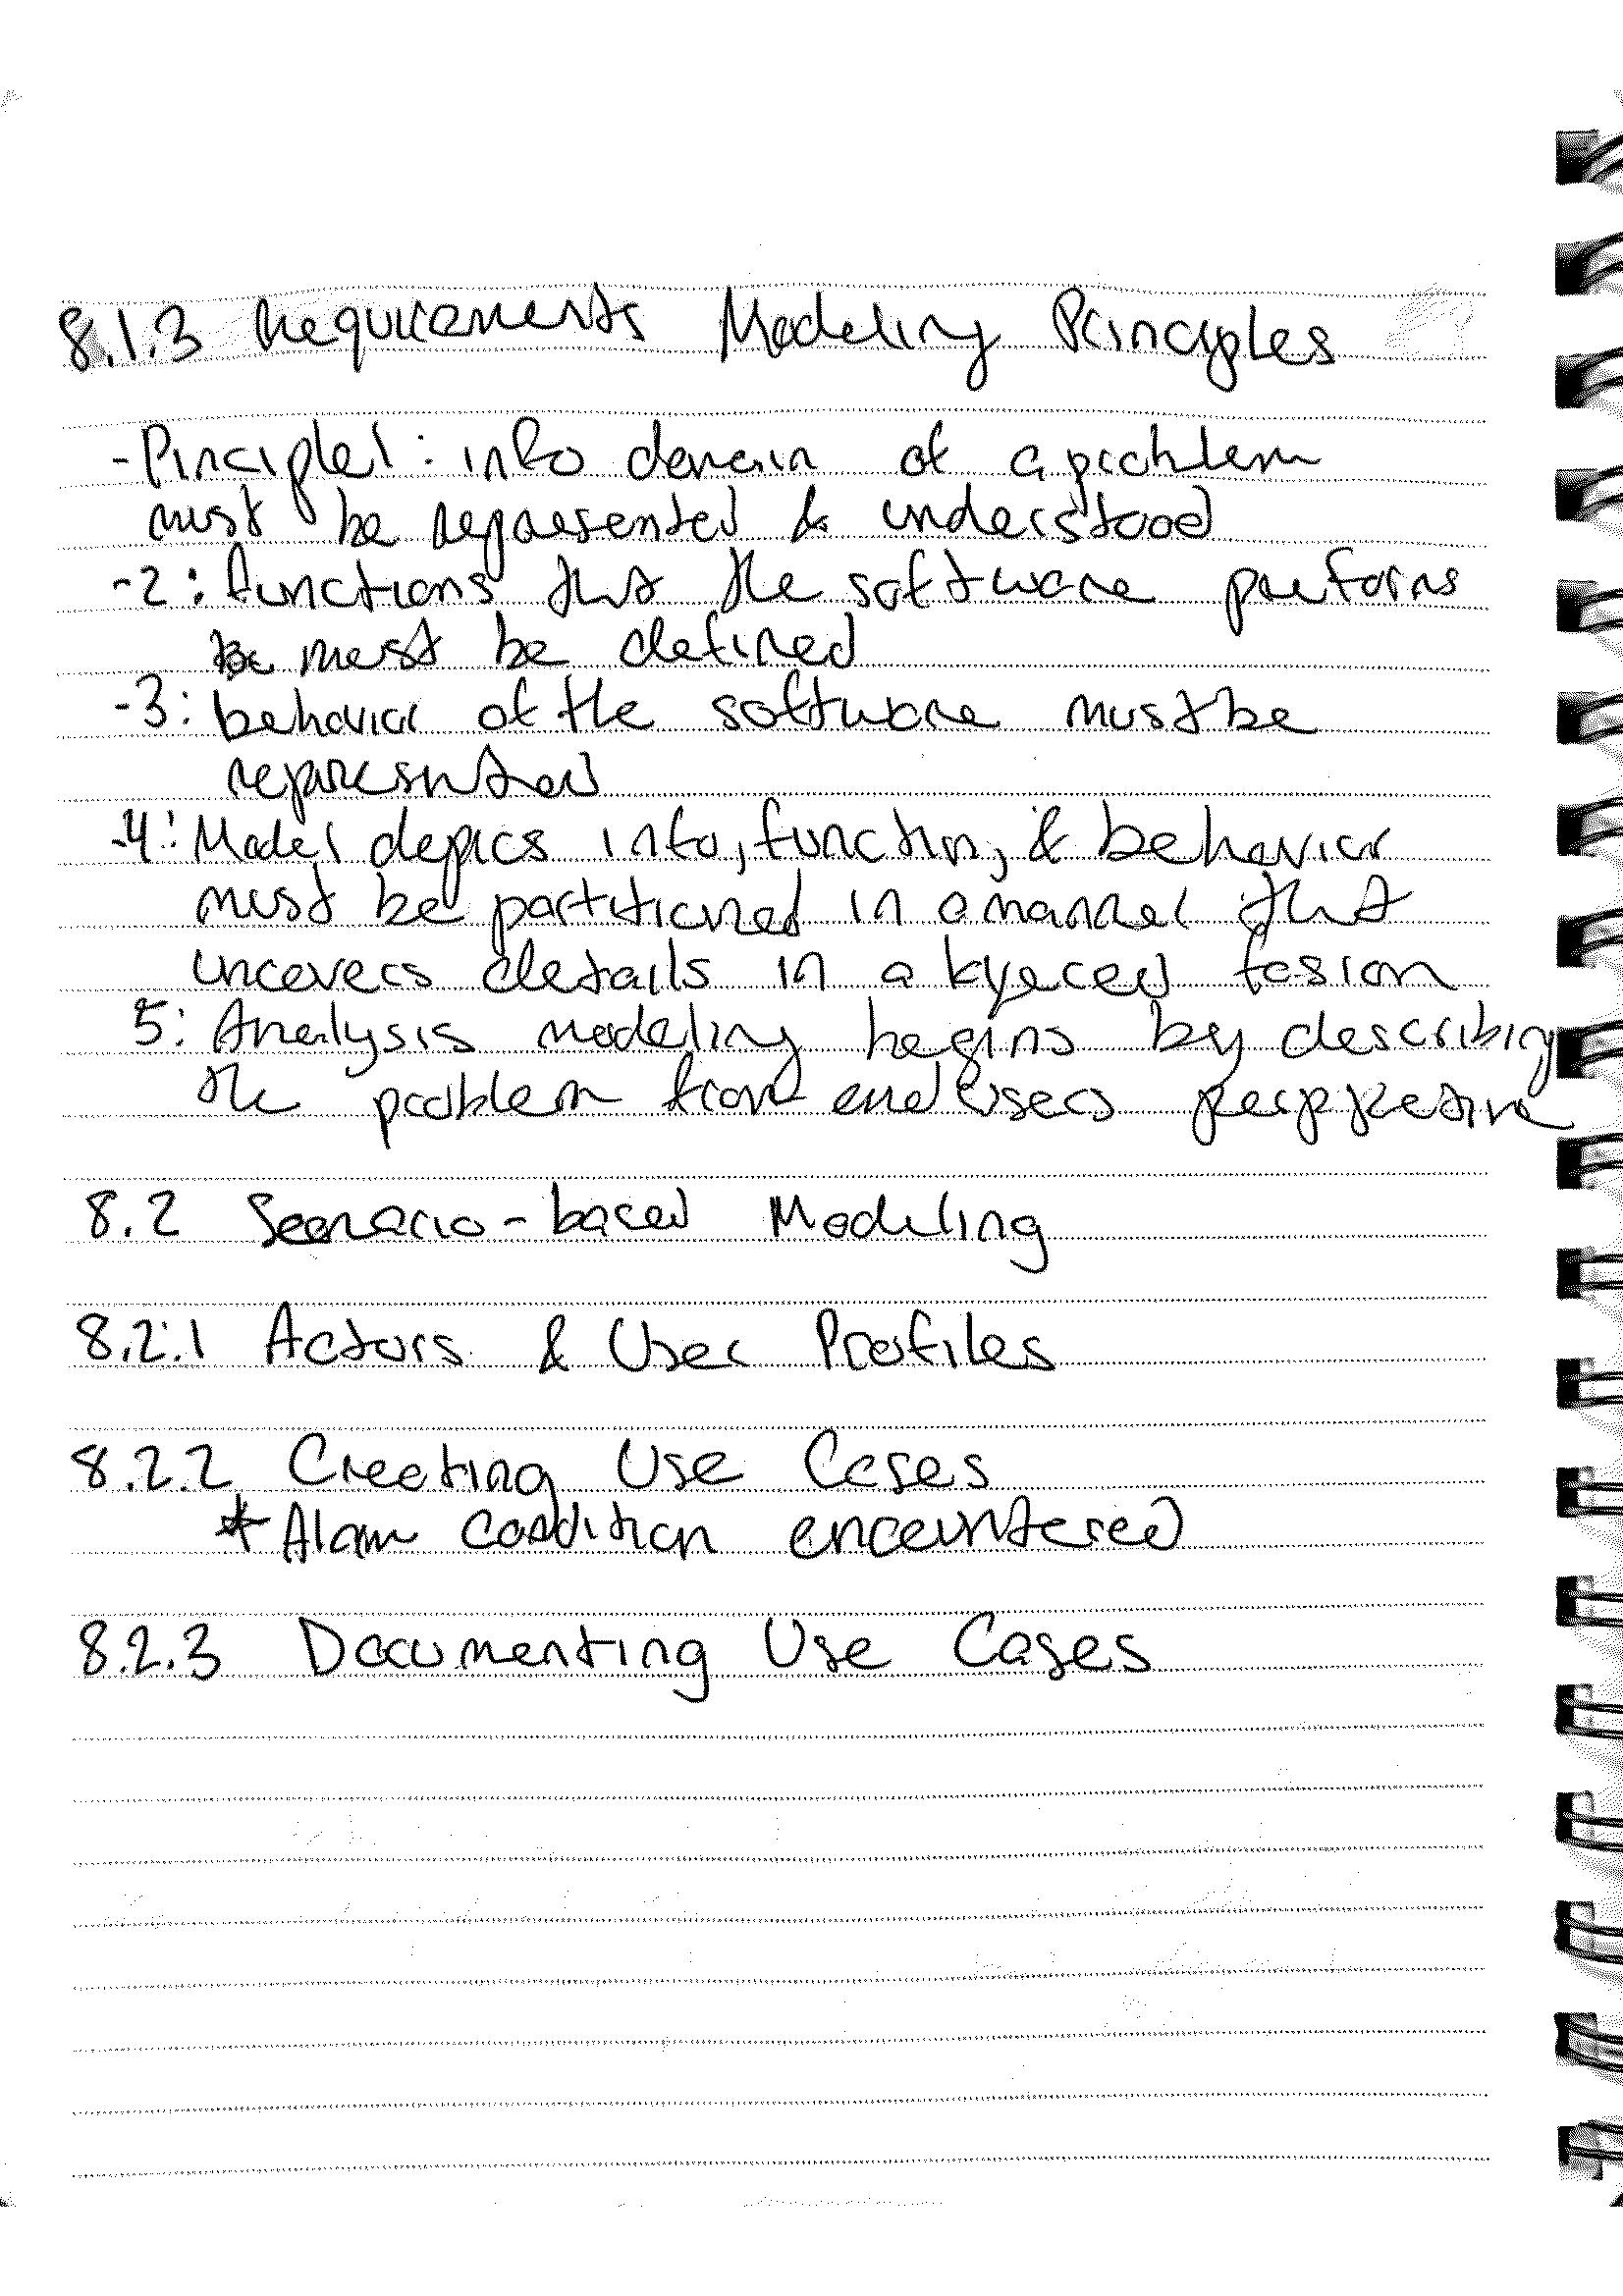 8.1.3 Requirements Modeling Principles
- Pinciple 1: info domain of a problem
must be represented & understood
- 2: functions that the software preforms
must be defined
- 3: behavior of the software must be
represented
- 4: Model depics info, function, & behavior
must be partitioned in a manner that
uncovers details in a layered fasion
5: Analysis modeling begins by describing
the problem from end users perspective
8.2 Scenario-based Modeling
8.2.1 Actors & User Profiles
8.2.2 Creating Use Cases
* Alarm condition encountered
8.2.3 Documenting Use Cases